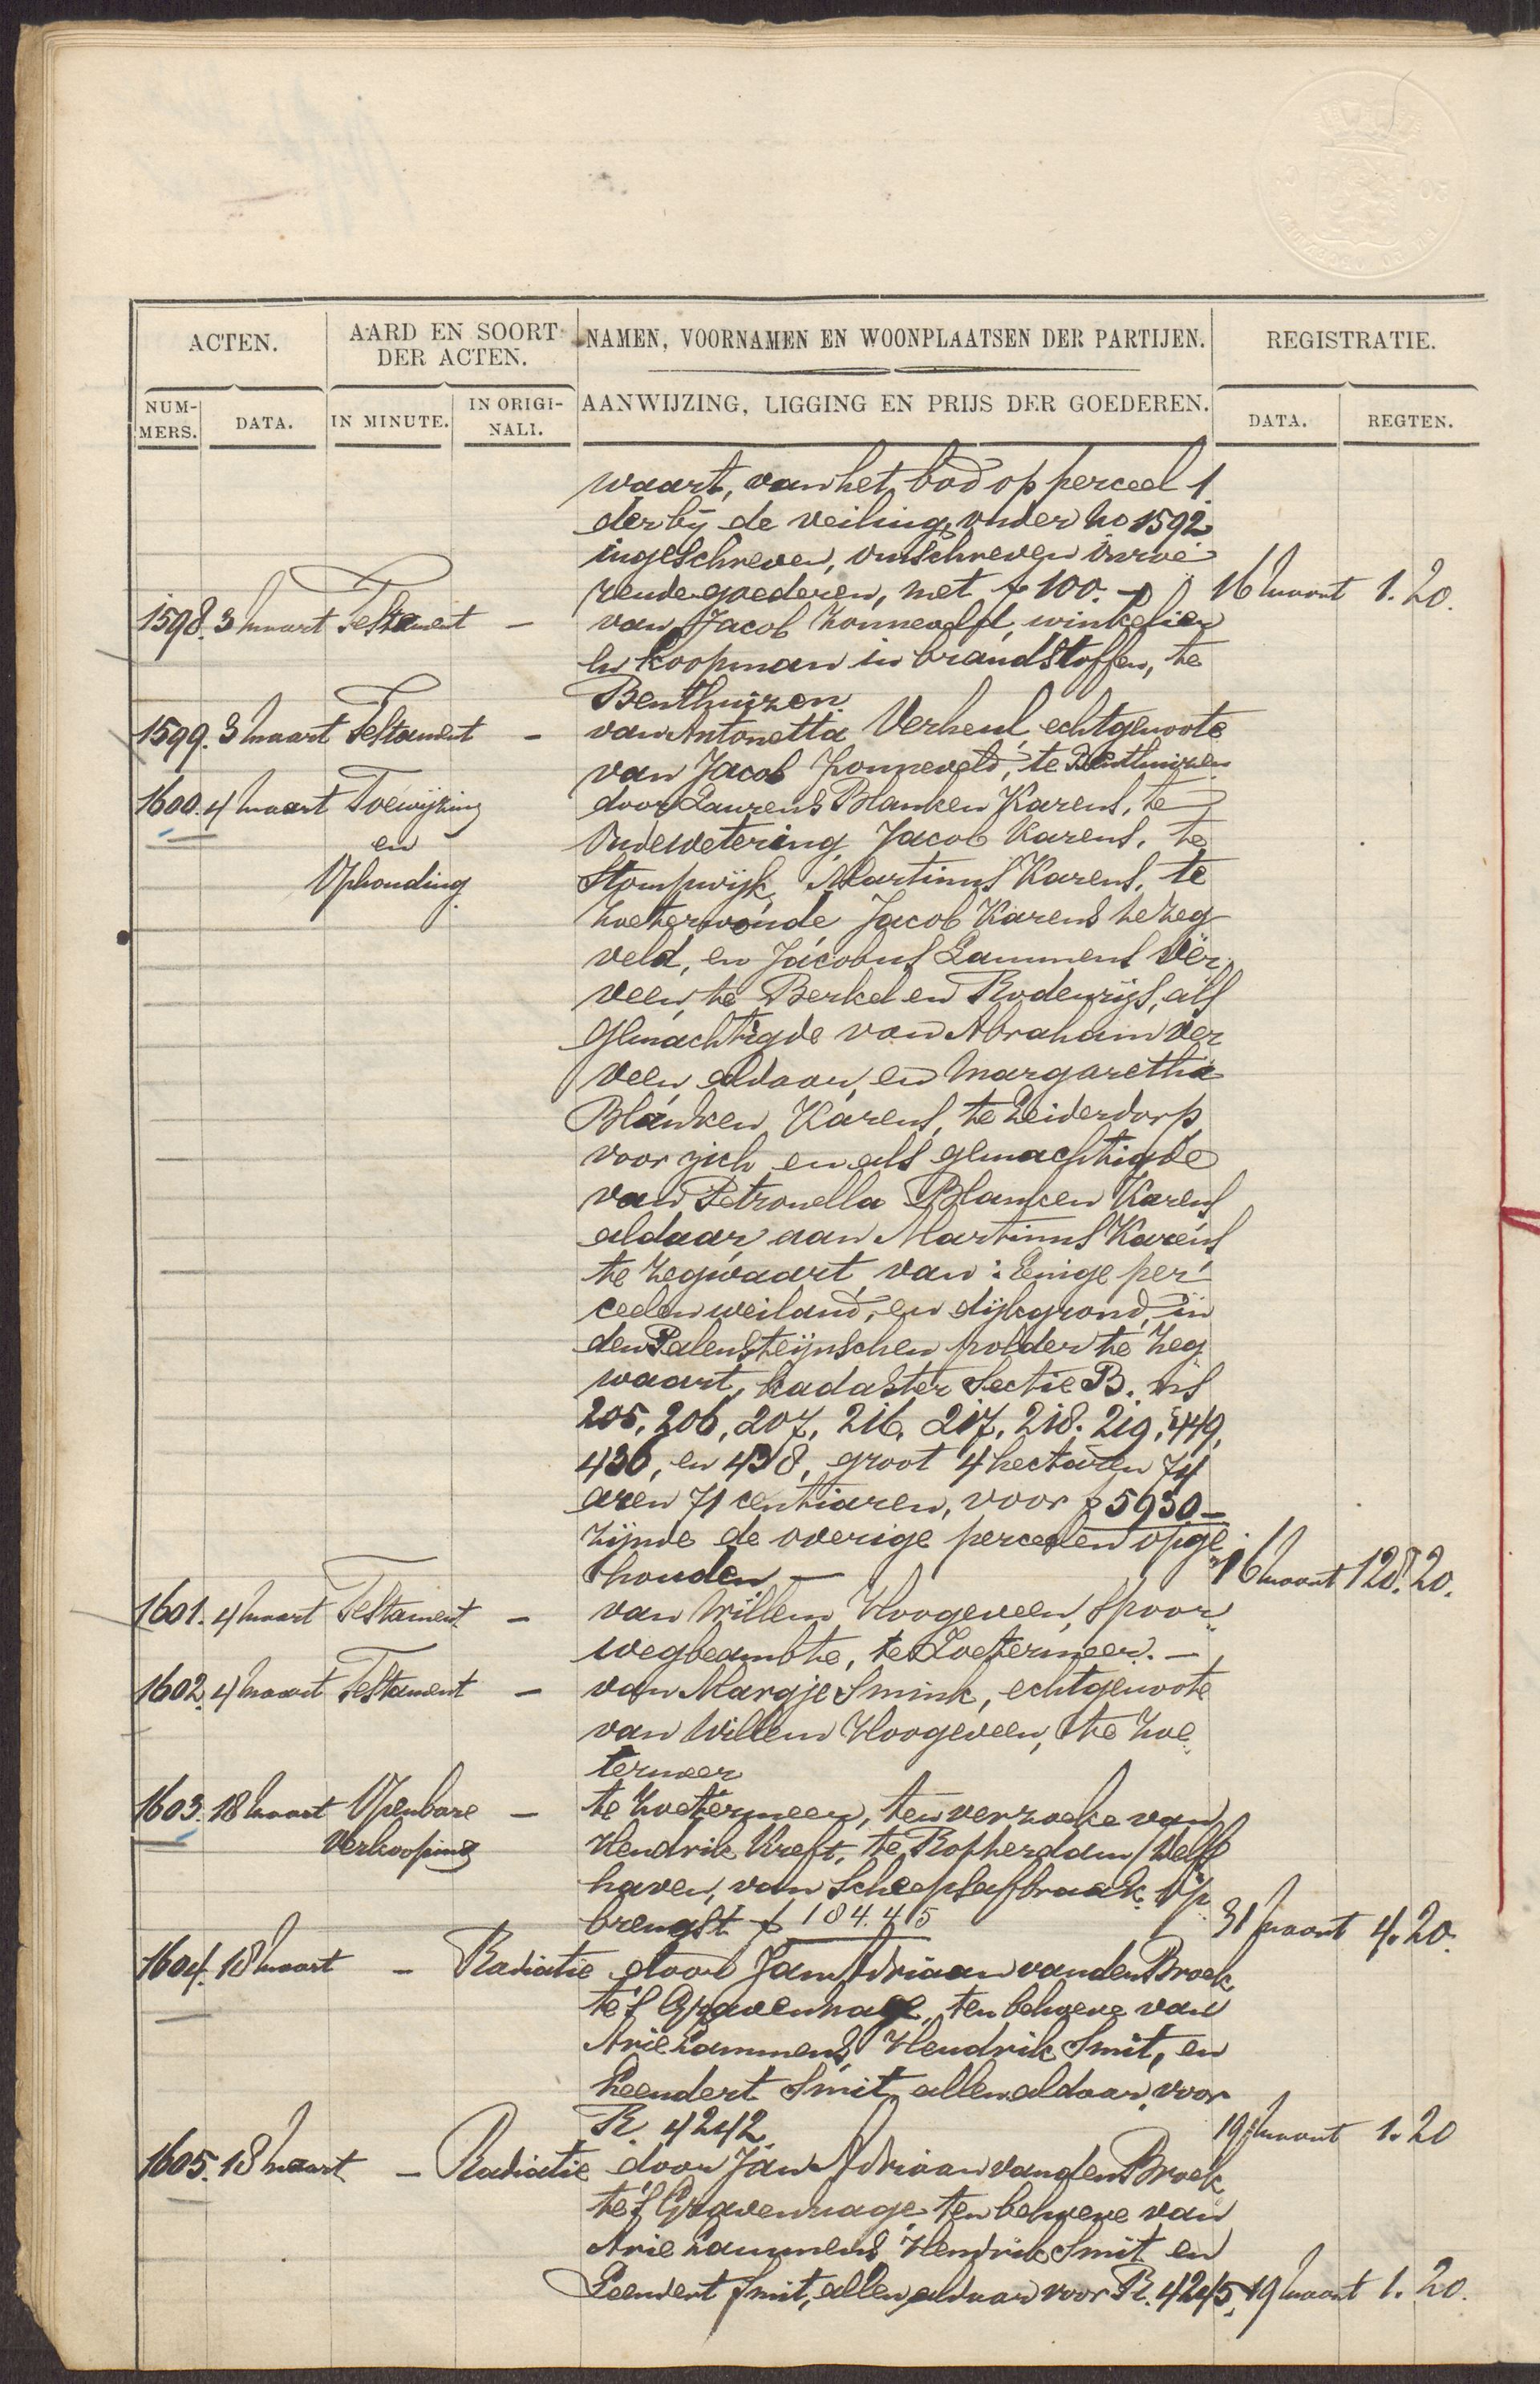 ACTEN.
AARD EN SOORT
DER ACTEN.
NAMEN, VOORNAMEN EN WOONPLAATSEN DER PARTIJEN.
REGISTRATIE.
NUM-
MERS.
DATA.
IN MINUTE.
IN ORIGI-
NALI.
AANWIJZING, LIGGING EN PRIJS DER GOEDEREN.
DATA.
REGTEN.
waart, van het bod op perceel 1
der bij de veiling, onder No 1592
ingeschreven, omschreven onroe
rende goederen, met f 100.— 16 Maart 1.20.
1598. 3 Maart Testament — van Jacob Zonneveld, winkelier
en koopman in brandstoffen, te
Benthuizen.
1599. 3 Maart Testament — van Antonetta Verheul, echtgenoote
van Jacob Zonneveld, te Benthuizen
1600. 4 Maart Toewijzing door Laurens Blanken Karens, te
en Oudewetering, Jacob Karens, te
Ophouding. Stompwijk, Martinus Karens, te
Zoeterwoude, Jacob Karens te Zeg
veld, en Jacobus Lammens Ver
veen, te Berkel en Rodenrijs, als
gemachtigde van Abraham Ver
veen, aldaar, en Margaretha
Blanken Karens, te Leiderdorp,
voor zich en als gemachtigde
van Petronella Blanken Karens
aldaar, aan Martinus Karens
te Zegwaart, van: Eenige per
ceelen weiland, en dijkgrond, in
den Palensteijnschen polder te Zeg
waart, kadaster Sectie B. nrs
205, 206, 207, 216, 217, 218. 219, 449,
436, en 438, groot 4 hectaren 74
aren 71 centiaren, voor f 5930—
zijnde de overige perceelen opge
houden — 16 Maart 128.20.
1601. 4 Maart Testament — van Willem Hoogeveen, Spoor
wegbeambte, te Zoetermeer. —
1602. 4 Maart Testament — van Margje Smink, echtgenoote
van Willem Hoogeveen, te Zoe
termeer
1603. 18 Maart Openbare — te Zoetermeer, ten verzoeke van
Verkooping Hendrik Kreft, te Rotterdam/Delfs
haven, van Scheepsafbraak. Op
brengst f 184.45 31 Maart 4.20.
1604. 18 Maart — Radiatie door Jan Adriaan van den Broek
te 's Gravenhage, ten behoeve van
Arie Lammens, Hendrik Smit, en
Leendert Smit, allen aldaar, voor
R. 4242. 19 Maart 1.20
1605. 18 Maart — Radiatie door Jan Adriaan van den Broek
te 's Gravenhage, ten behoeve van
Arie Lammens, Hendrik Smit en
Leendert Smit, allen aldaar voor R. 4245. 19 Maart 1.20.